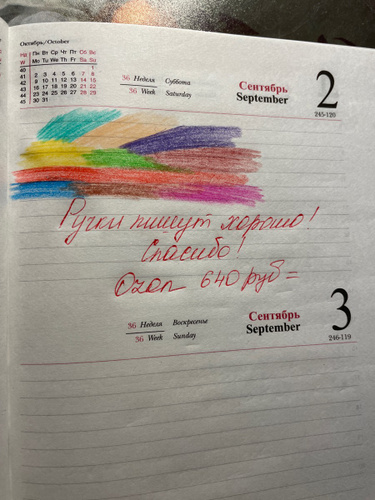 Октябрь/October
Нд Пн Вт Ср Чт Пт Сб Вс
W Mo Tu We Th Fr Sa Su
40 1
41 2 3 4 5 6 7 8
42 9 10 11 12 13 14 15
43 16 17 18 19 20 21 22
44 23 24 25 26 27 28 29
45 30 31
36 Неделя Суббота
36 Week Saturday
Сентябрь
September
2
245-120
Ручки пишут хорошо!
Спасибо!
Ozon 640 руб=
36 Неделя Воскресенье
36 Week Sunday
Сентябрь
September
3
246-119